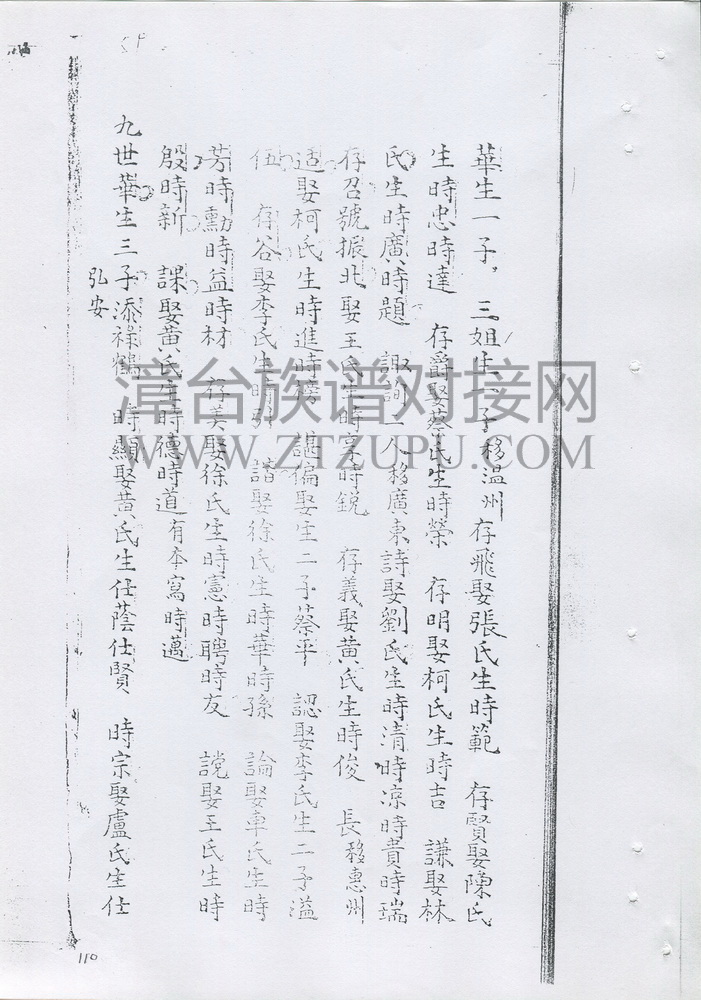 華生一子，三姐生一子移温州 存飛娶張氏生時範 存賢娶陳氏
生時忠時達 存爵娶蔡氏生時榮 存明娶柯氏生時吉 謙娶林
氏生時廣時題 諏詢二人移廣東詩娶劉氏生時清時凉時貴時瑞
存召號振北娶王氏生時享時鋭 存義娶黄氏生時俊 長移惠州
适娶柯氏生時進時榜 諶偏娶生二子蔡平 認娶李氏生二子溢
伍 存谷娶李氏生時弘 諧娶徐氏生時華時孫 論娶車氏生時
芳時勳時益時材 存美娶徐氏生時憲時聘時友 説娶王氏生時
殷時新 課娶黄氏生時德時道有本寫時邁
九世華生三子添禄鶴 時顯娶黄氏生仕蔭仕賢 時宗娶盧氏生仕
弘安
110
漳台族谱对接网
WWW.ZTZUPU.COM